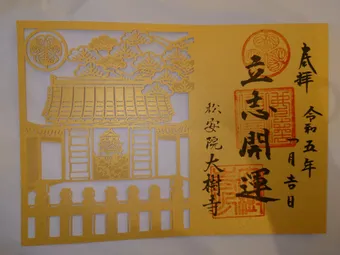 奉拝
令和五年一月吉日
立志開運
松安院
大樹寺